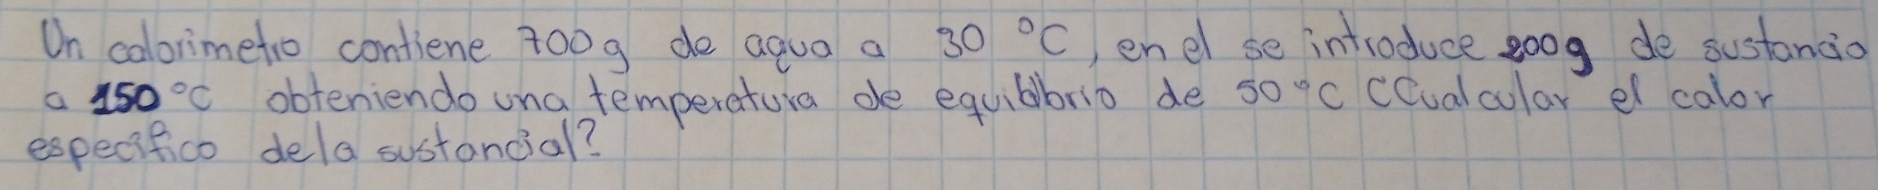 Un calorimetro contiene 700g de agua a 30 °C, en el se introduce 200g de sustancia
a 150 °C obteniendo una temperatura de equilibrio de 50 °C CCualcular el calor
especifico dela sustancial?